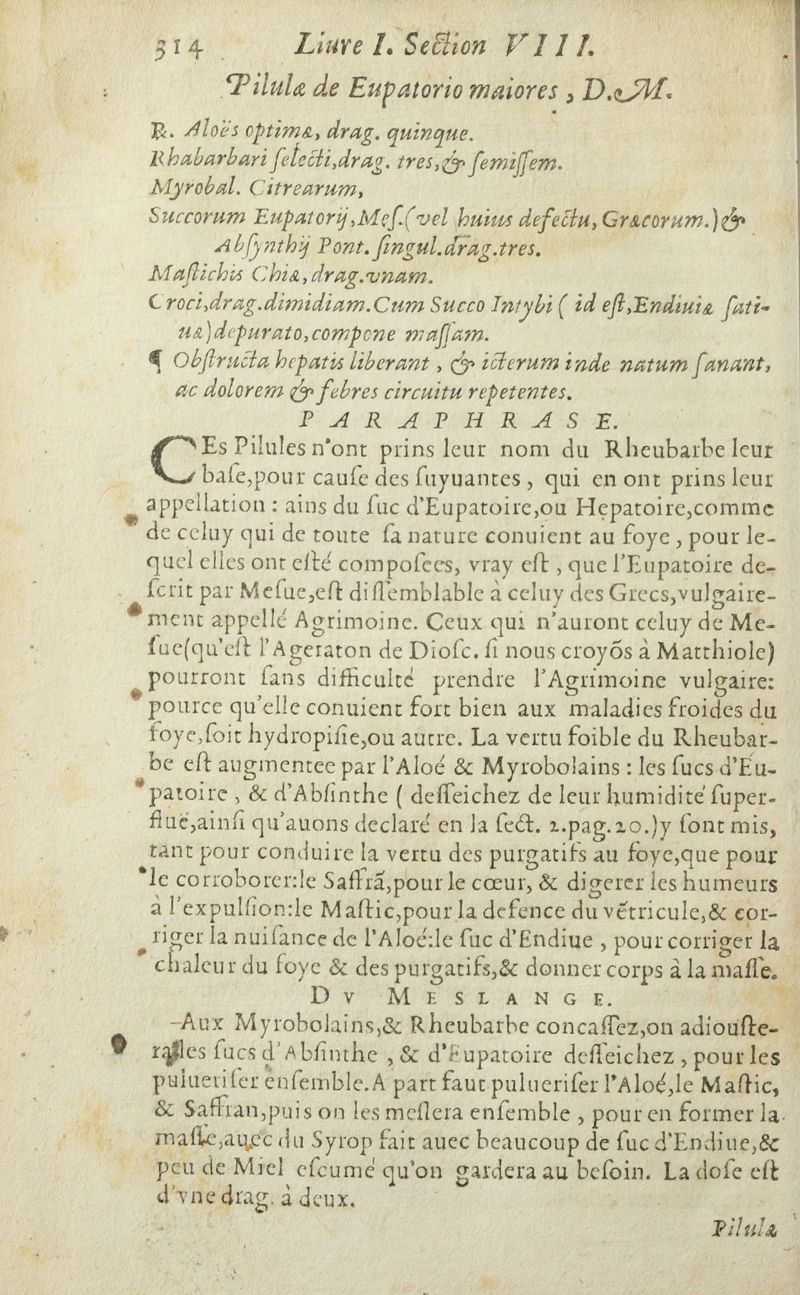 314 Liure I. Section VIII.
Pilulæ de Eupatorio maiores, D.M.
℞. Aloës optimæ, drag. quinque.
Rhabarbari selecti, drag. tres, & semissem.
Myrobal. Citrearum,
Succorum Eupatorij, Mes. (vel huius defectu, Græcorum.) &
Absynthij Pont. singul. drag. tres.
Mastichis Chiæ, drag. vnam.
Croci, drag. dimidiam. Cum Succo Intybi ( id est, Endiuiæ sati-
uæ) depurato, compone massam.
¶ Obstructa hepatis liberant, & icterum inde natum sanant,
ac dolorem & febres circuitu repetentes.
PARAPHRASE.
CEs Pilules n'ont prins leur nom du Rheubarbe leur
base, pour cause des suyuantes, qui en ont prins leur
appellation : ains du suc d'Eupatoire, ou Hepatoire, comme
de celuy qui de toute sa nature conuient au foye, pour le-
quel elles ont esté composees, vray est, que l'Eupatoire de-
scrit par Mesue, est dissemblable à celuy des Grecs, vulgaire-
ment appellé Agrimoine. Ceux qui n'auront celuy de Me-
sue (qu'est l'Ageraton de Diosc. si nous croyõs à Matthiole)
pourront sans difficulté prendre l'Agrimoine vulgaire:
pource qu'elle conuient fort bien aux maladies froides du
foye, soit hydropisie, ou autre. La vertu foible du Rheubar-
be est augmentee par l'Aloé & Myrobolains : les sucs d'Eu-
patoire, & d'Absinthe ( desseichez de leur humidité super-
fluë, ainsi qu'auons declaré en la sect. 2. pag. 20.) y sont mis,
tant pour conduire la vertu des purgatifs au foye, que pour
le corroborer: le Saffrã, pour le cœur, & digerer les humeurs
à l'expulsion: le Mastic, pour la defence du vẽtricule, & cor-
riger la nuisance de l'Aloé: le suc d'Endiue, pour corriger la
chaleur du foye & des purgatifs, & donner corps à la masse.
DV MESLANGE.
Aux Myrobolains, & Rheubarbe concassez, on adiouste-
ra les sucs d'Absinthe, & d'Eupatoire desseichez, pour les
puluerifer ensemble. A part faut puluerifer l'Aloé, le Mastic,
& Saffran, puis on les meslera ensemble, pour en former la
masse, auec du Syrop fait auec beaucoup de suc d'Endiue, &
peu de Miel escumé qu'on gardera au besoin. La dose est
d'vne drag. à deux.
Pilulæ